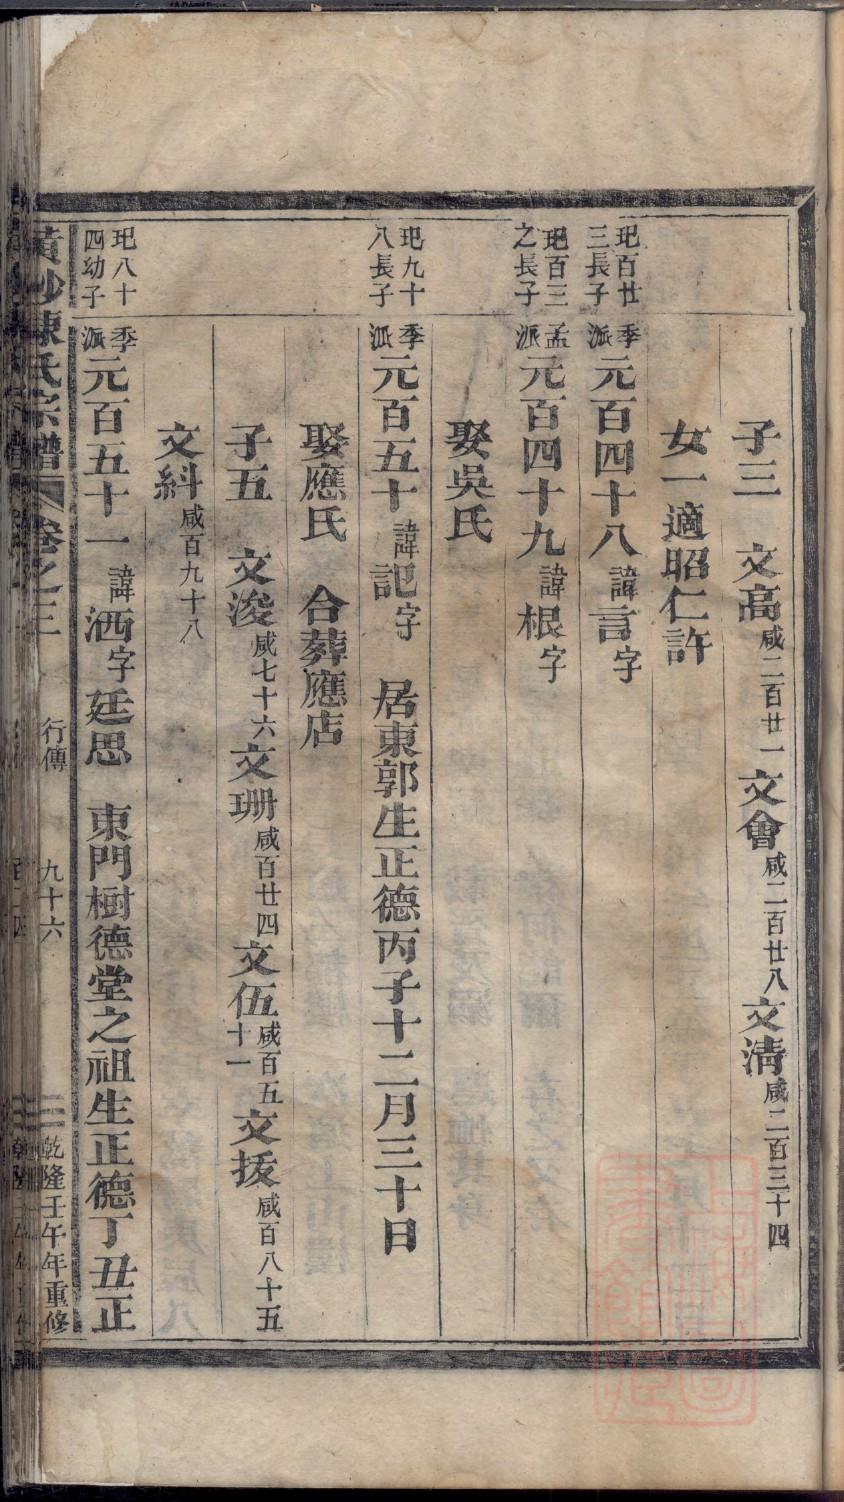 子三 文高咸二百廿一文會咸二百廿八文淸咸二百三十四
女一適昭仁許
玘百廿三長子 季派元百四十八諱言字
玘百三之長子 孟派元百四十九諱根字
娶吳氏
玘九十八長子 季派元百五十諱記字 居東郭生正德丙子十二月三十日
娶應氏 合葬應店
子五 文浚咸七十六文珊咸百廿四文伍咸百五十一文㧞咸百八十五
文紏咸百九十八
玘八十四幼子 季派元百五十一諱洒字廷思 東門樹德堂之祖生正德丁丑正
陳氏宗譜 卷之三 行傳 九十六 乾隆壬午年重修